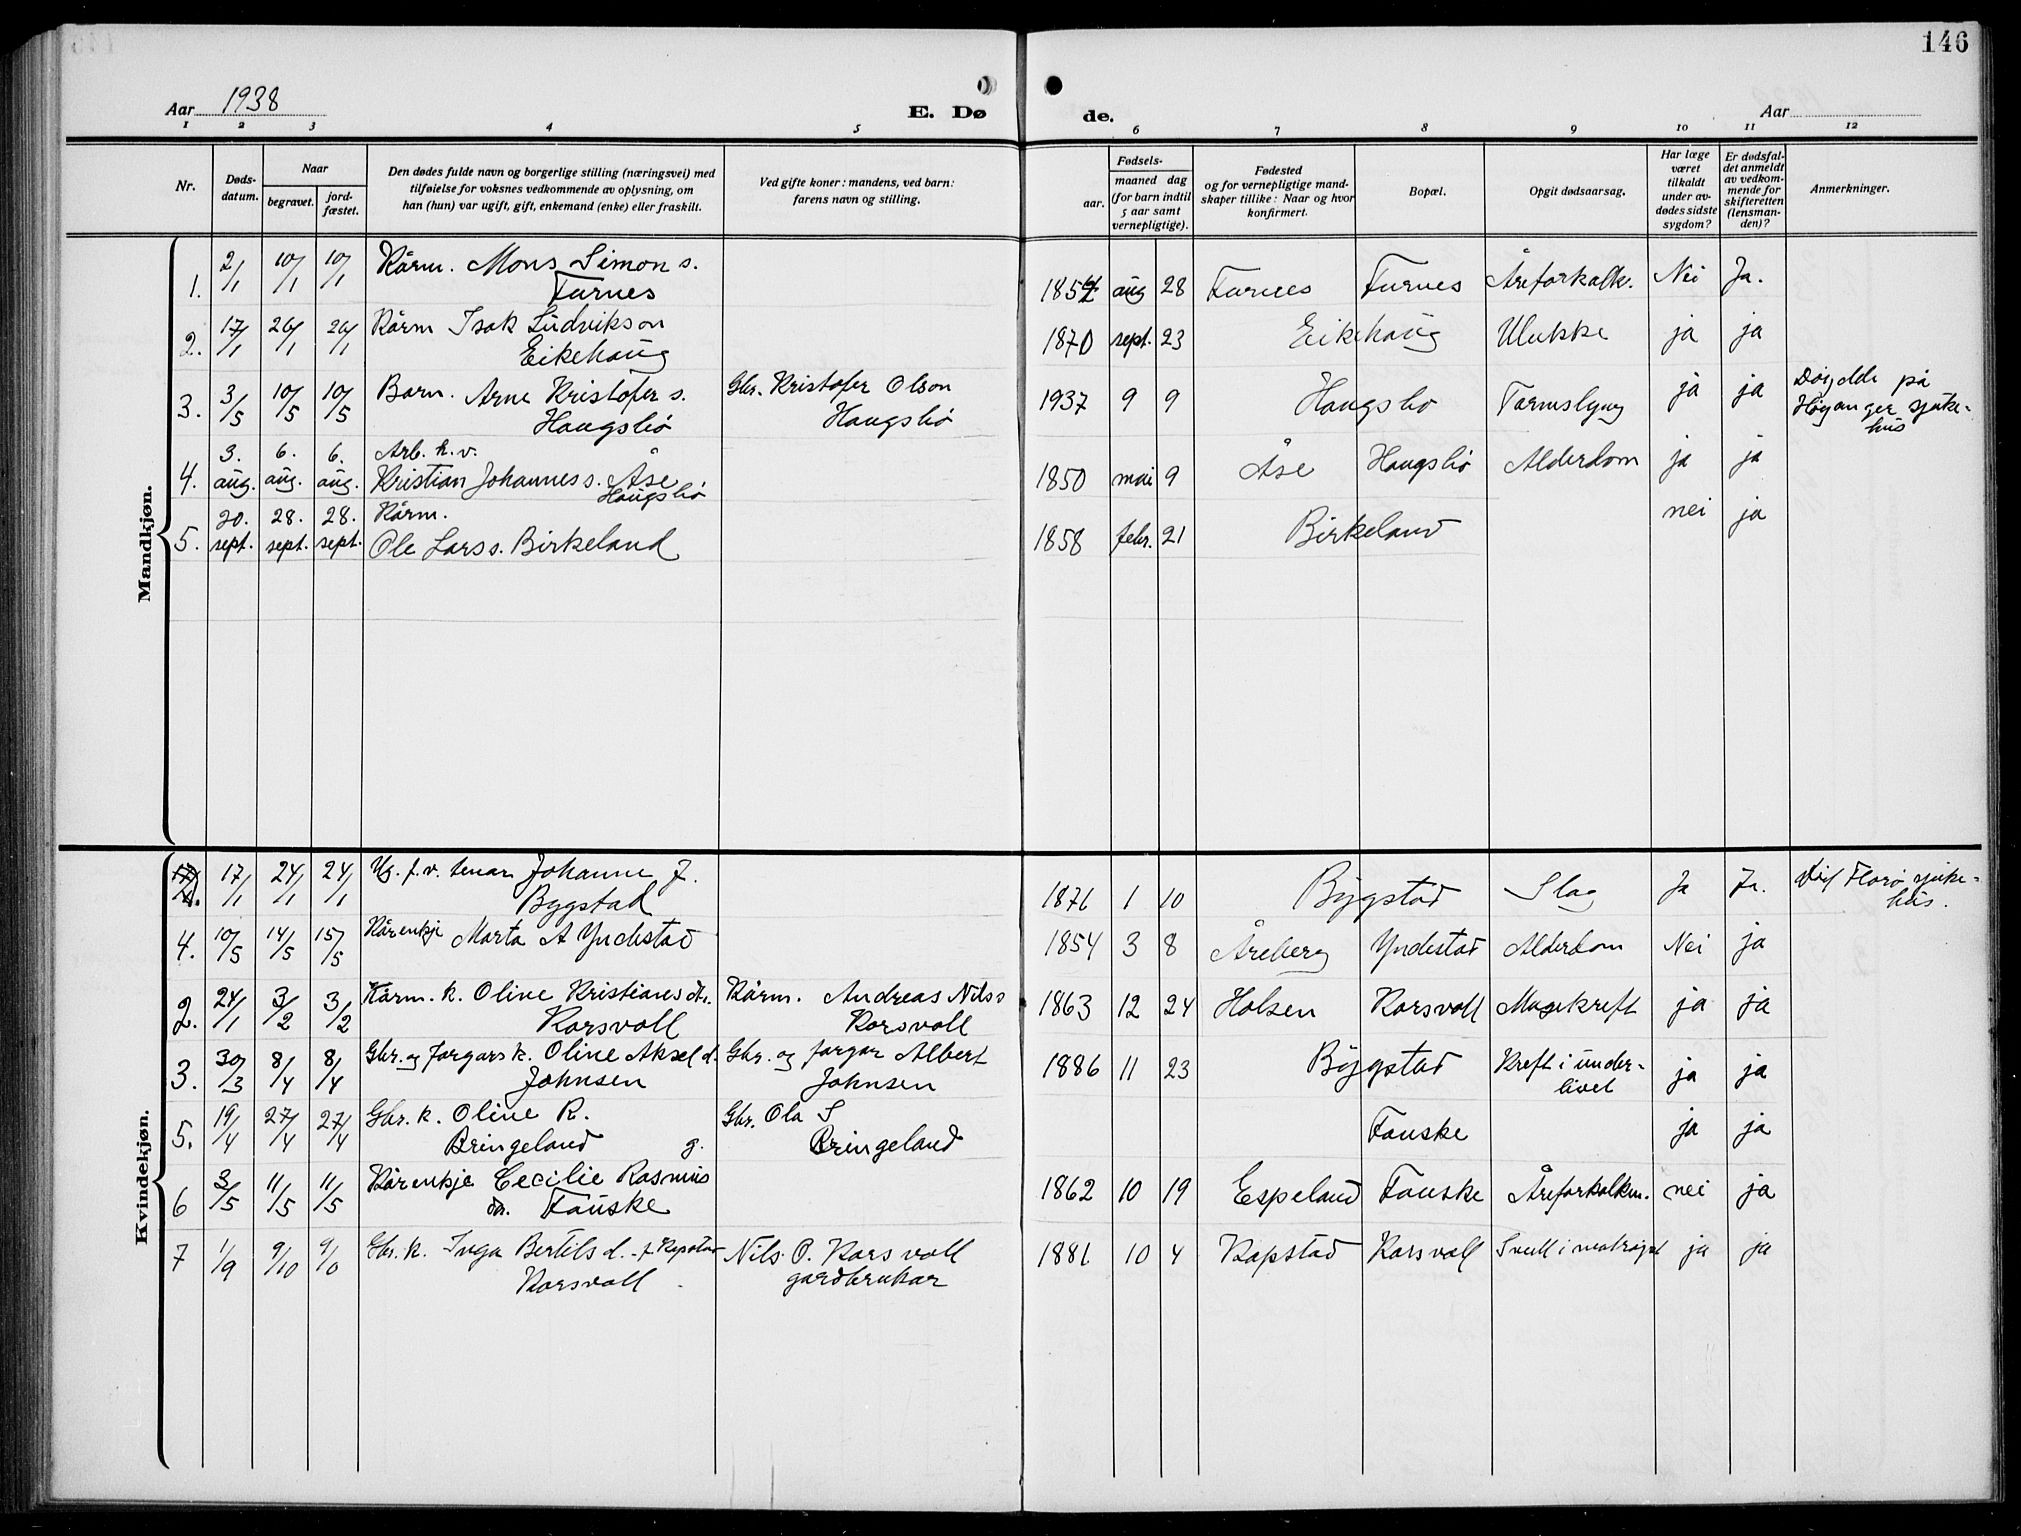 146
Aar 1938
E. Dø
de.
Aar
1 2 3 4 5 6 7 8 9 10 11 12
Nr.
Døds-
datum.
Naar
begravet.
jord-
fæstet.
Den dødes fulde navn og borgerlige stilling (næringsvei) med
tilføielse for voksnes vedkommende av oplysning, om
han (hun) var ugift, gift, enkemand (enke) eller fraskilt.
Ved gifte koner: mandens, ved barn:
farens navn og stilling.
Fødsels-
aar.
maaned dag
(for barn indtil
5 aar samt
vernepligtige).
Fødested
og for vernepligtige mand-
skaper tillike: Naar og hvor
konfirmert.
Bopæl.
Opgit dødsaarsag.
Har læge
været
tilkaldt
under av-
dødes sidste
sygdom?
Er dødsfal-
det anmeldt
av vedkom-
mende for
skifteretten
(lensman-
den)?
Anmerkninger.
Mandkjøn.
1. 2/1 10/1 10/1 Kårm. Mons Simon s.
Furnes
aug 28 Furnes Furnes Åreforkalk. Nei Ja.
2. 17/1 26/1 26/1 Kårm Isak Ludvikson
Eikehaug
1870 sept. 23 Eikehaug Ulukke ja ja
3. 3/5 10/5 10/5 Barn. Arne Kristofer s.
Haugsbø
Gbr. Kristofer Olson
Haugsbø
1937 9 9 Haugsbø Tarmslyng ja ja
Døydde på
Høyanger sjuke-
hus
4. 3. aug. 6. aug. 6. aug. Arb. k. v.
Kristian Johannes s. Åse
Haugsbø
1850 mai 9 Åse Haugsbø Alderdom ja ja
5. 20. sept. 28. sept. 28. sept. Kårm.
Ole Lars s. Birkeland
1858 febr. 21 Birkeland nei ja
Kvindekjøn.
17/1 24/1 24/1 Ug. f. v. tenar Johanne J.
Bygstad
1871 1 10 Bygstad Slag Ja Ja.
Florø sjuke-
hus.
4. 10/5 14/5 15/5 Kårenkje Marta A Yndestad
1854 3 8 Åreberg Yndestad Alderdom Nei ja
2. 24/1 3/2 3/2 Kårm. k. Oline Kristianes dtr.
Korsvoll
Kårm. Andreas Nils s
Korsvoll
1863 12 24 Holsen Korsvoll Magekreft ja ja
3. 30/3 8/4 8/4 Gbr. og fargars k. Oline Aksel d.
Johnsen
Gbr. og fargar Albert
Johnsen
1886 11 23 Bygstad Kreft i under-
livet
ja ja
5. 19/4 27/4 27/4 Gbr. k. Oline R.
Bringeland g.
Gbr. Ola S
Bringeland
Fauske ja ja
6 3/5 11/5 11/5 Kårenkje Cecilie Rasmus
dtr. Fauske
1862 10 19 Espeland Fauske Åreforkalkn. nei ja
7 1/9 9/10 9/10 Gbr. k. Inga Bertils d. f. Kapstad
Korsvoll
Nils O. Korsvoll
gardbrukar
1881 10 4 Kapstad Korsvoll Svull i ja ja